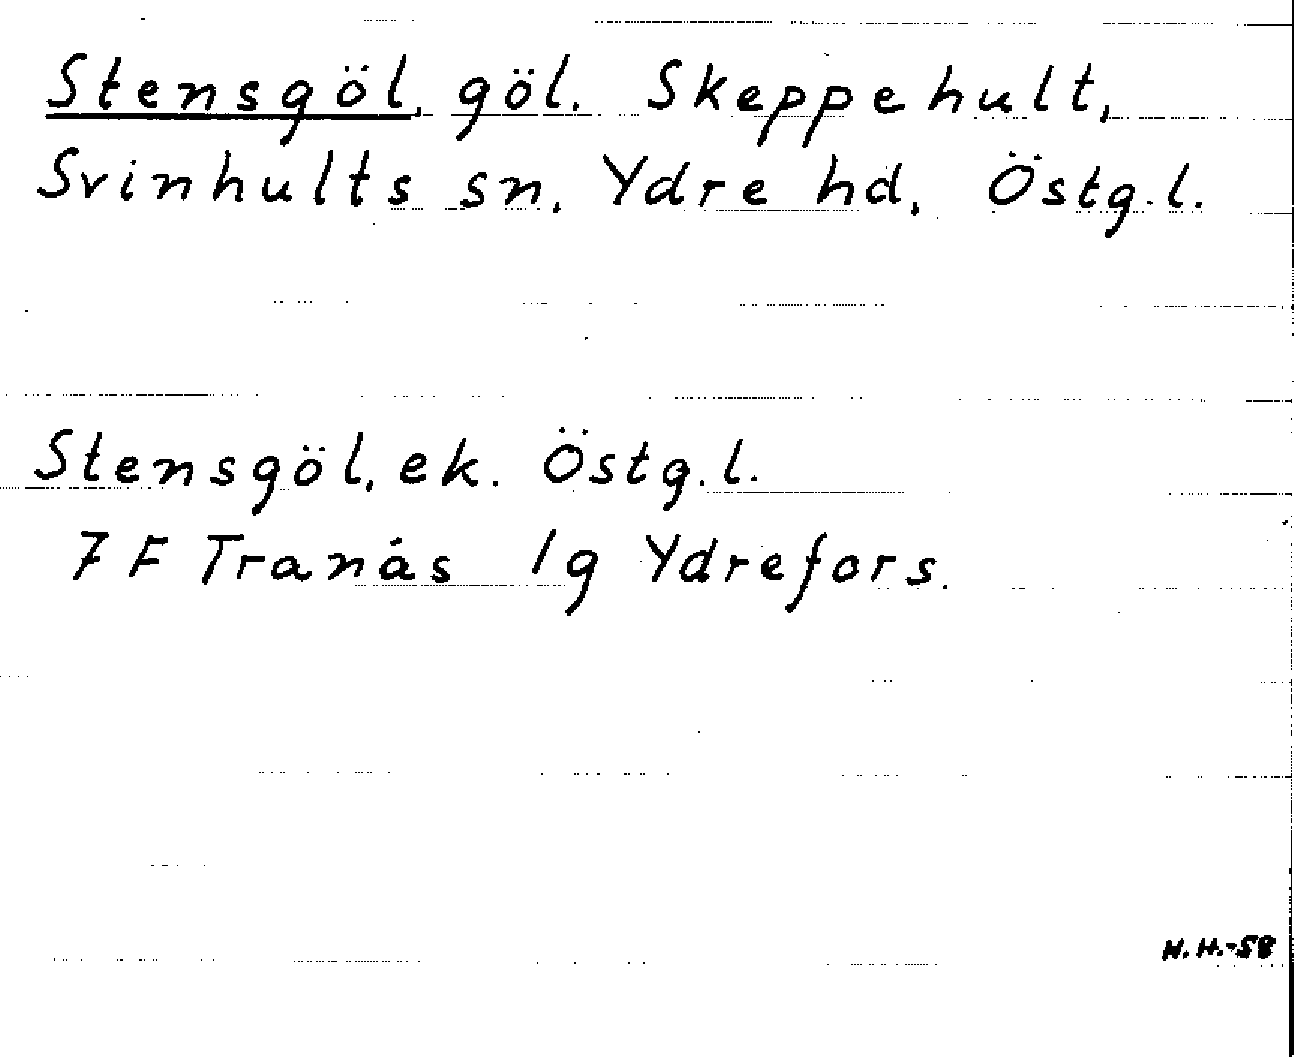 Stensgöl, göl. Skeppehult,
Svinhults sn. Ydre hd, Östg.l.
Stensgöl, ek. Östg.l.
7 F Tranås 1g Ydrefors.
N.H.-58